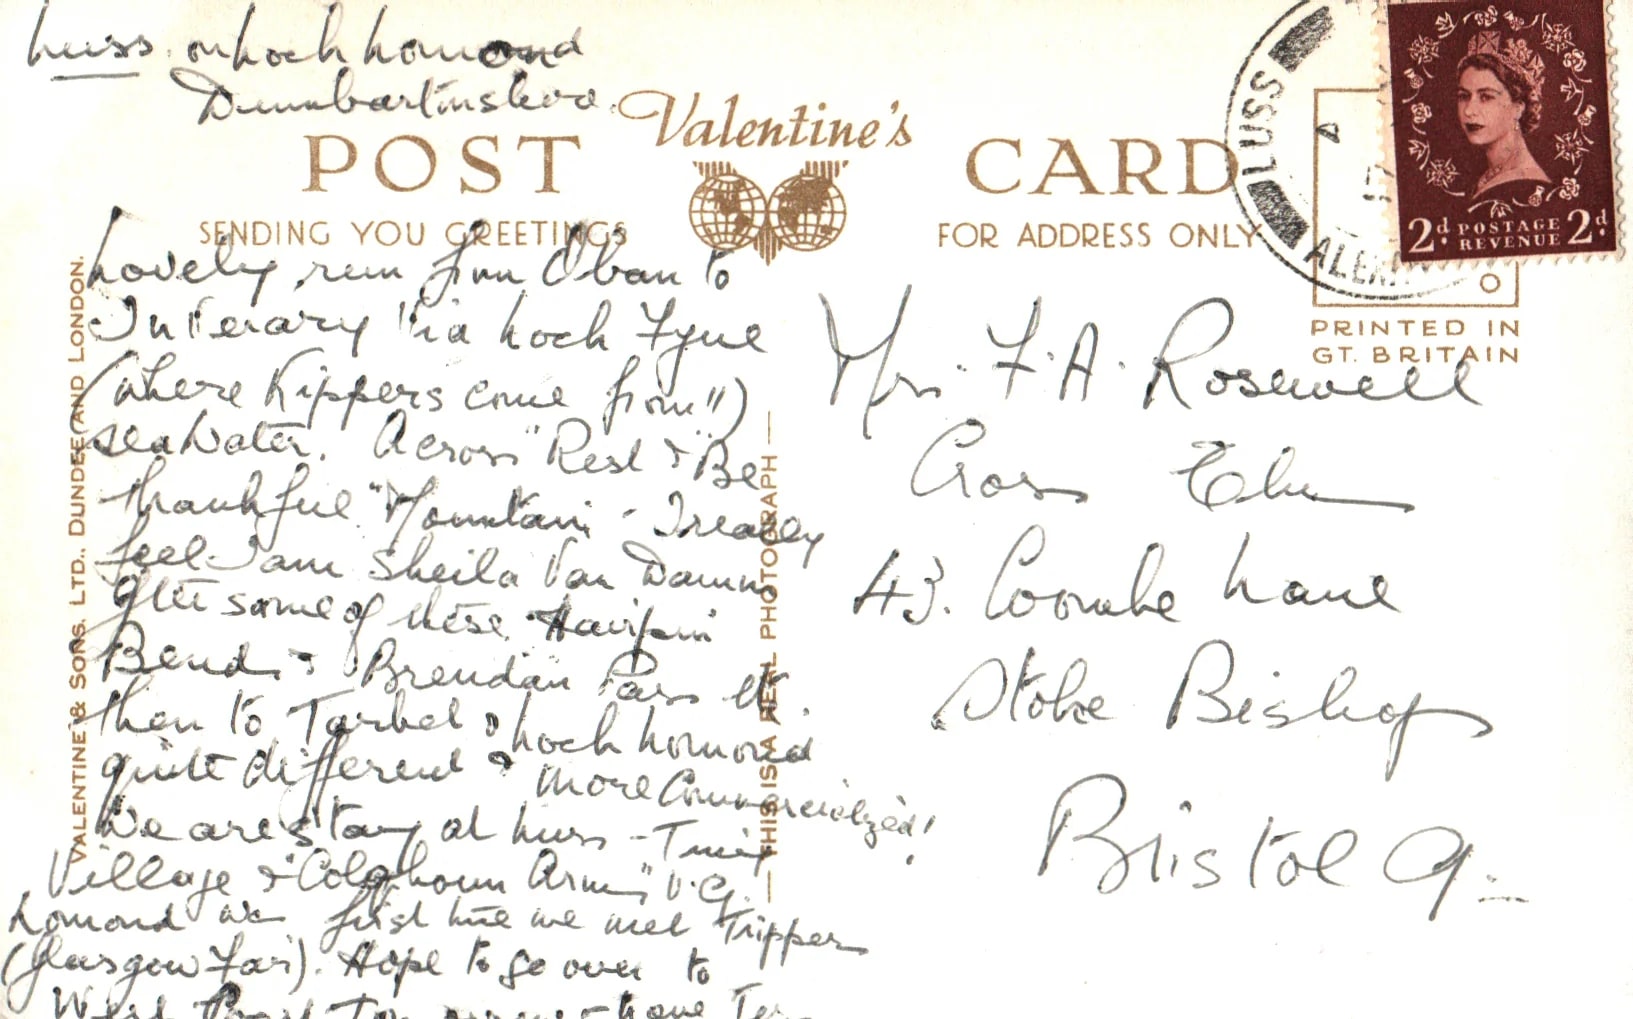 Luss. on Loch Lomond
Dumbartonshire.
Valentine's
POST CARD
SENDING YOU GREETINGS
FOR ADDRESS ONLY
LUSS
2d POSTAGE REVENUE 2d
PRINTED IN
GT. BRITAIN
Lovely run from Oban to
Inverary Via Loch Fyne
(where Kippers come from!!)
sea water. Across "Rest & Be
Thankful" Mountain - I really
feel I am Sheila Van Damm
after some of these Hairpin
Bends & Brendan Pass etc.
Then to Tarbet & Loch Lomond
quite different & more Commercialized!
We are stay at Luss - Tiny
Village & "Colqhoun Arms" V.G.
Lomond was first time we met Trippers
(Glasgow Fair). Hope to go over to
West Coast
Mrs. F. A. Rosewell
Cross Elms
43. Coombe Lane
Stoke Bishop
Bristol 9.
VALENTINE & SONS. LTD., DUNDEE AND LONDON.
— THIS IS A REAL PHOTOGRAPH —